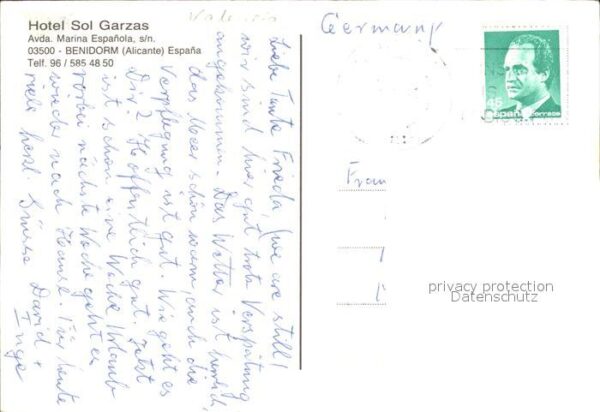 Hotel Sol Garzas
Avda. Marina Española, s/n.
03500 - BENIDORM (Alicante) España
Telf. 96 / 585 48 50
Valencia
Germany
45
España correos
Frau
privacy protection
Datenschutz
Liebe Tante Frieda, (we are still!)
wir sind hier gut trotz Verspätung
angekommen. Das Wetter ist herrlich,
das Meer schön warm, auch die
Verpflegung ist gut. Wie geht es
Dir? Hoffentlich gut. Jetzt
ist schon eine Woche Urlaub
vorbei nächste Woche geht es
wieder nach Hause. Für heute
viele herzl. Grüsse David +
Inge